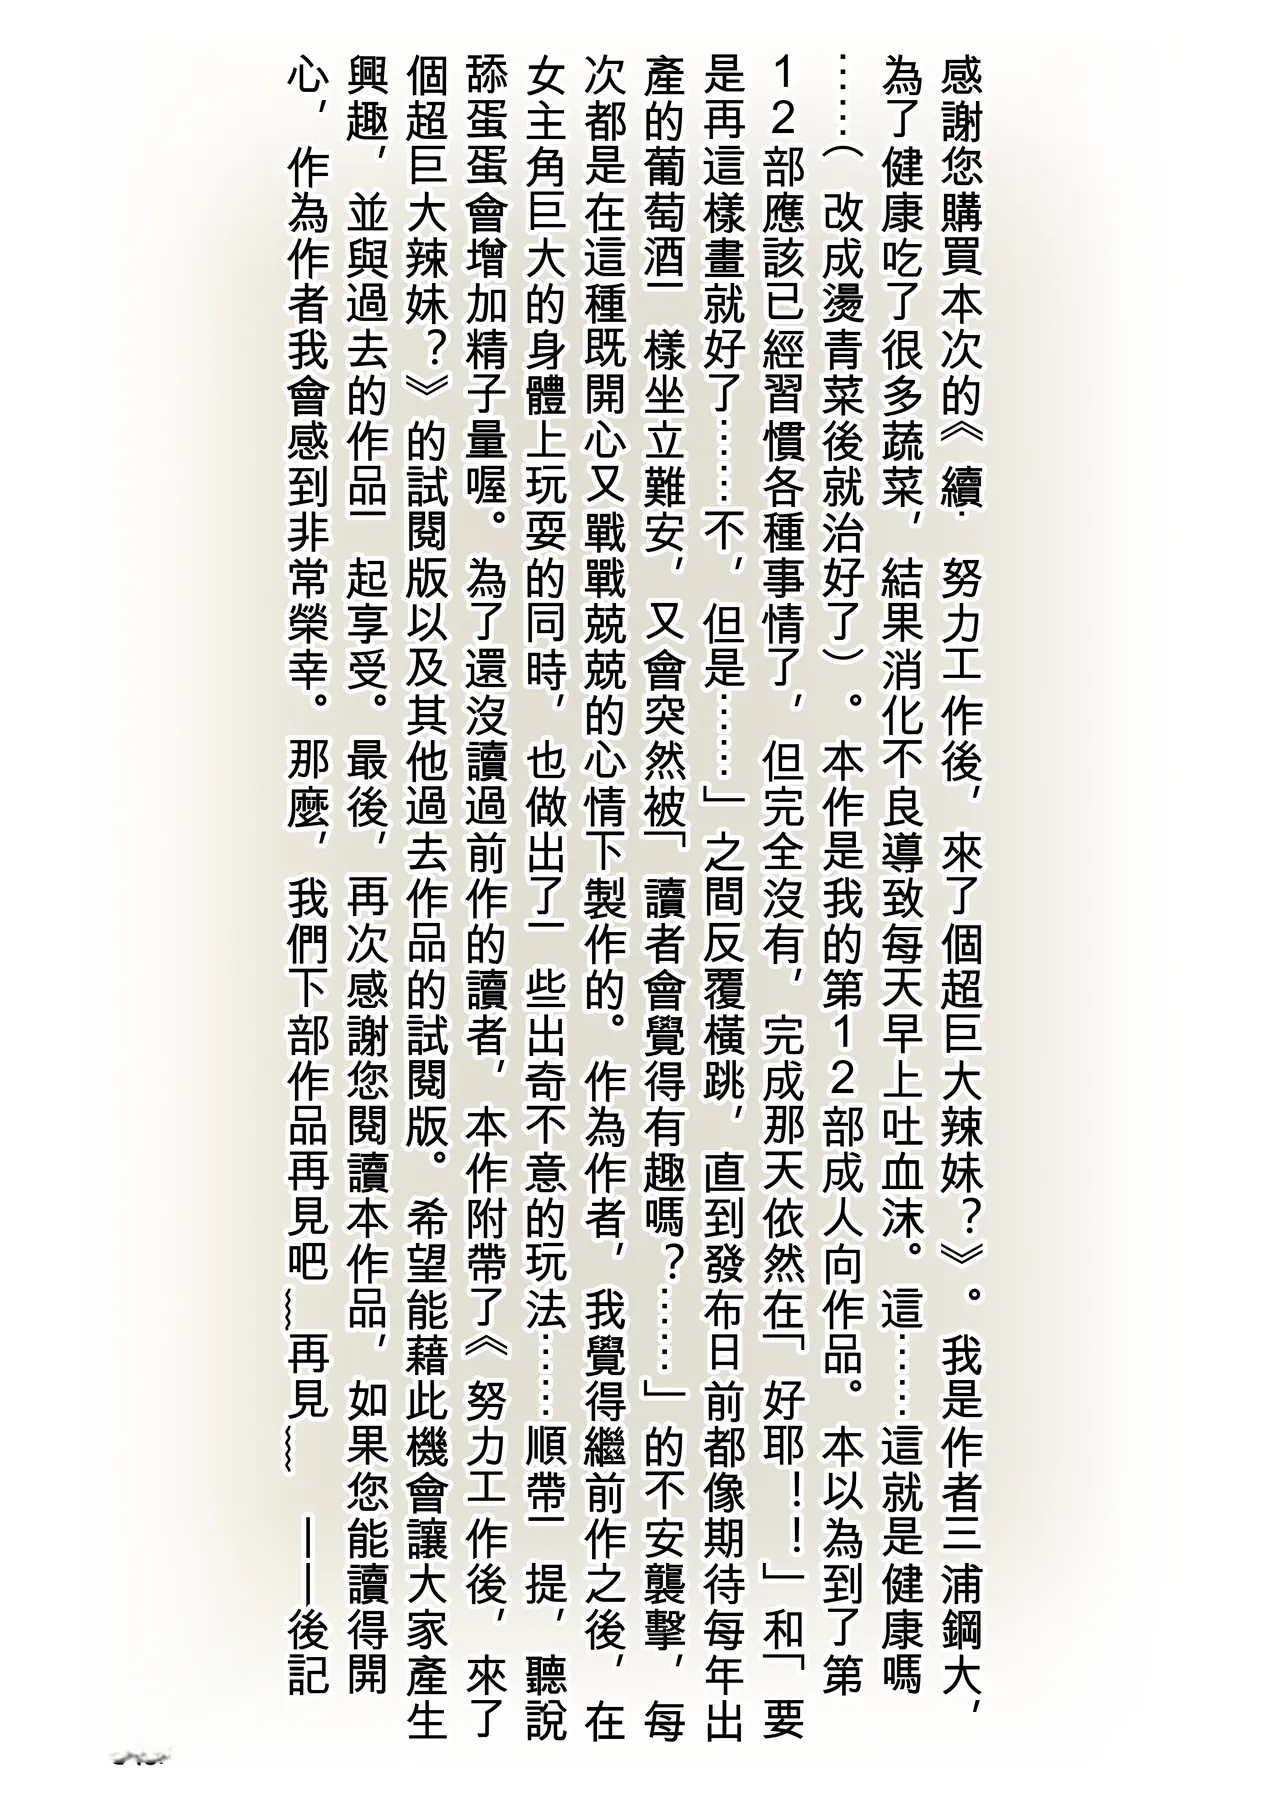 感謝您購買本次的《續·努力工作後，來了個超巨大辣妹？》。我是作者三浦鋼大，
為了健康吃了很多蔬菜，結果消化不良導致每天早上吐血沫。這……這就是健康嗎
……（改成燙青菜後就治好了）。本作是我的第12部成人向作品。本以為到了第
12部應該已經習慣各種事情了，但完全沒有，完成那天依然在「好耶！！」和「要
是再這樣畫就好了……不，但是……」之間反覆橫跳，直到發布日前都像期待每年出
產的葡萄酒一樣坐立難安，又會突然被「讀者會覺得有趣嗎？……」的不安襲擊，每
次都是在這種既開心又戰戰兢兢的心情下製作的。作為作者，我覺得繼前作之後，在
女主角巨大的身體上玩耍的同時，也做出了一些出奇不意的玩法……順帶一提，聽說
舔蛋蛋會增加精子量喔。為了還沒讀過前作的讀者，本作附帶了《努力工作後，來了
個超巨大辣妹？》的試閱版以及其他過去作品的試閱版。希望能藉此機會讓大家產生
興趣，並與過去的作品一起享受。最後，再次感謝您閱讀本作品，如果您能讀得開
心，作為作者我會感到非常榮幸。那麼，我們下部作品再見吧~~再見~~　——後記